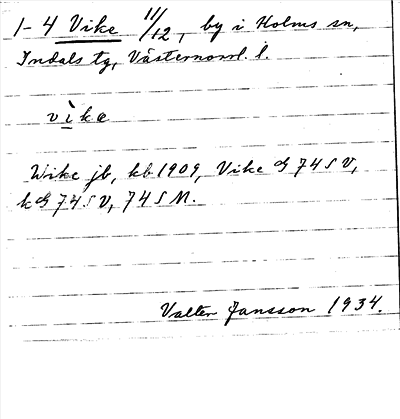 1-4 Vike 11/12, by i Holms sn,
Indals tg, Västernorrl. l.
vìkæ
Wike jb, kb 1909, Vike G 74 S V,
k G 74 S V, 74 S M.
Valter Jansson 1934.